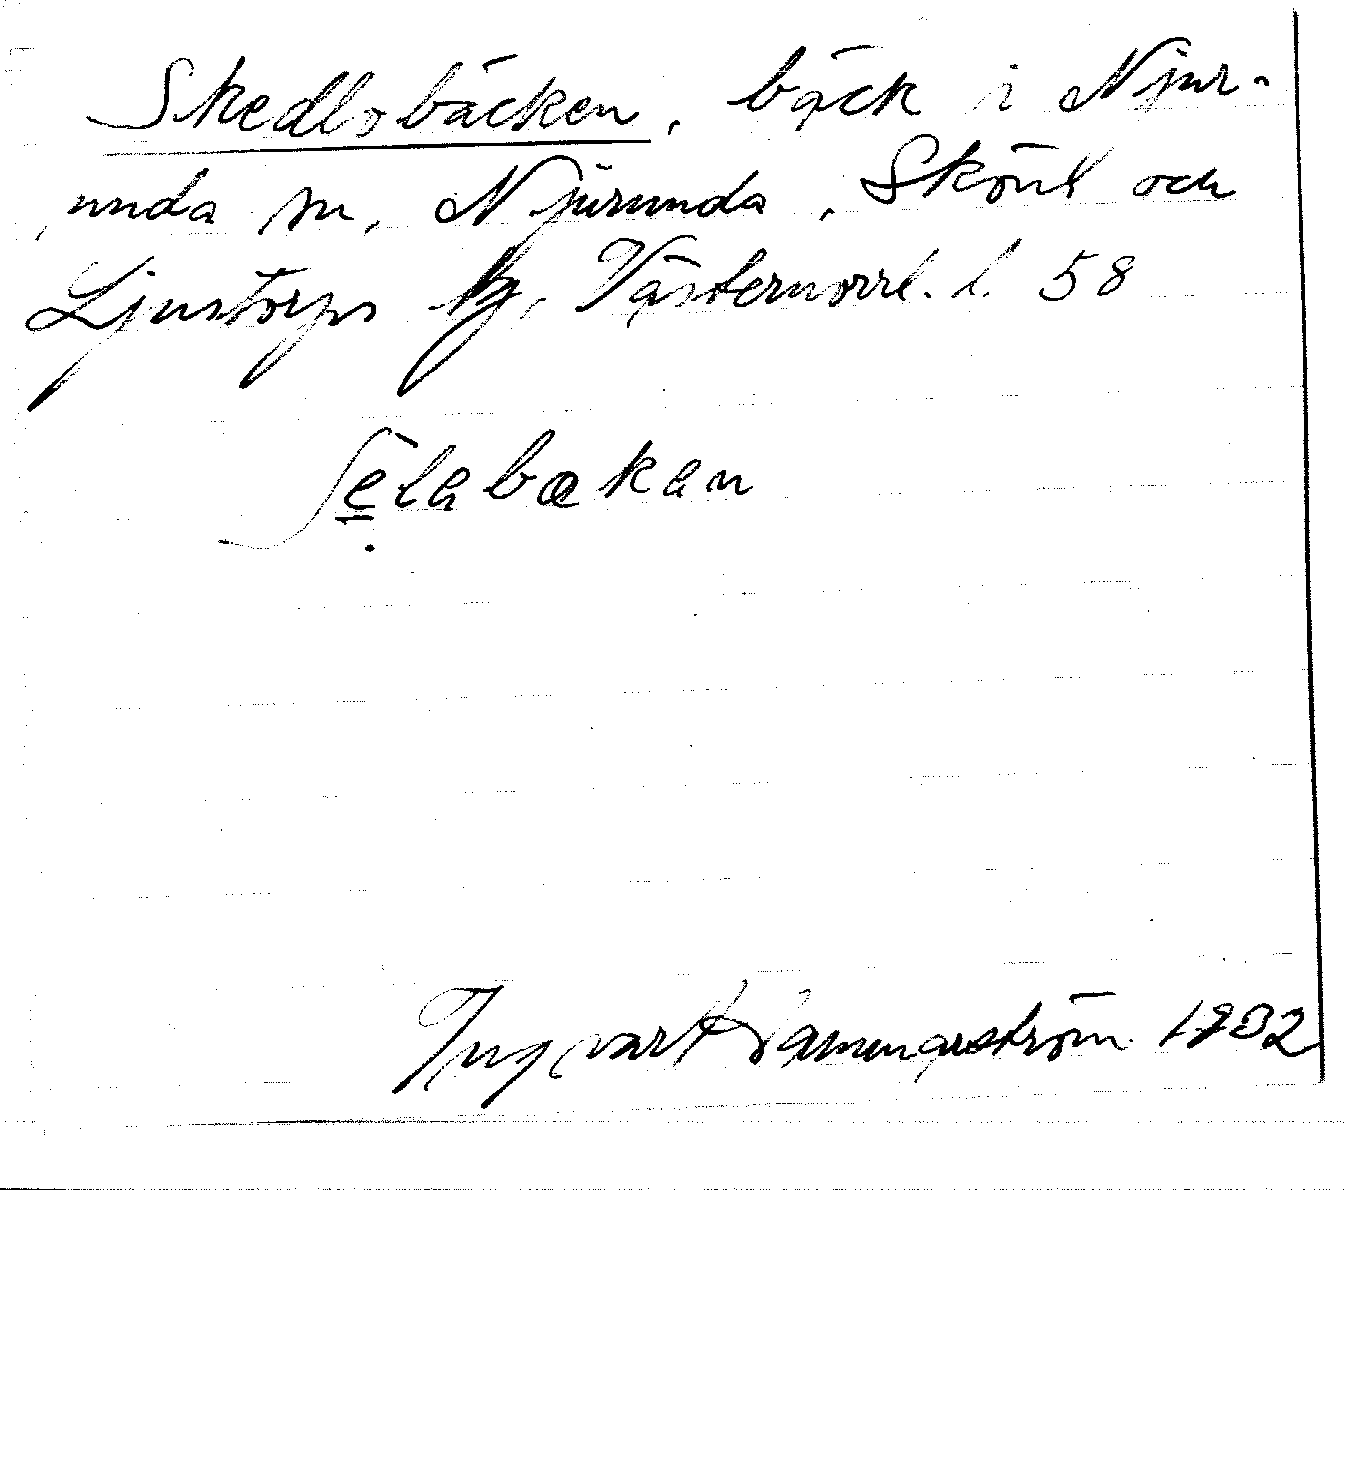 Skedlobäcken, bäck i Njur-
unda sn, Njurunda, Sköns och
Ljustorps tg, Västernorrl. l. 58
ʃelabækan
Ingvar Hammarström 1932